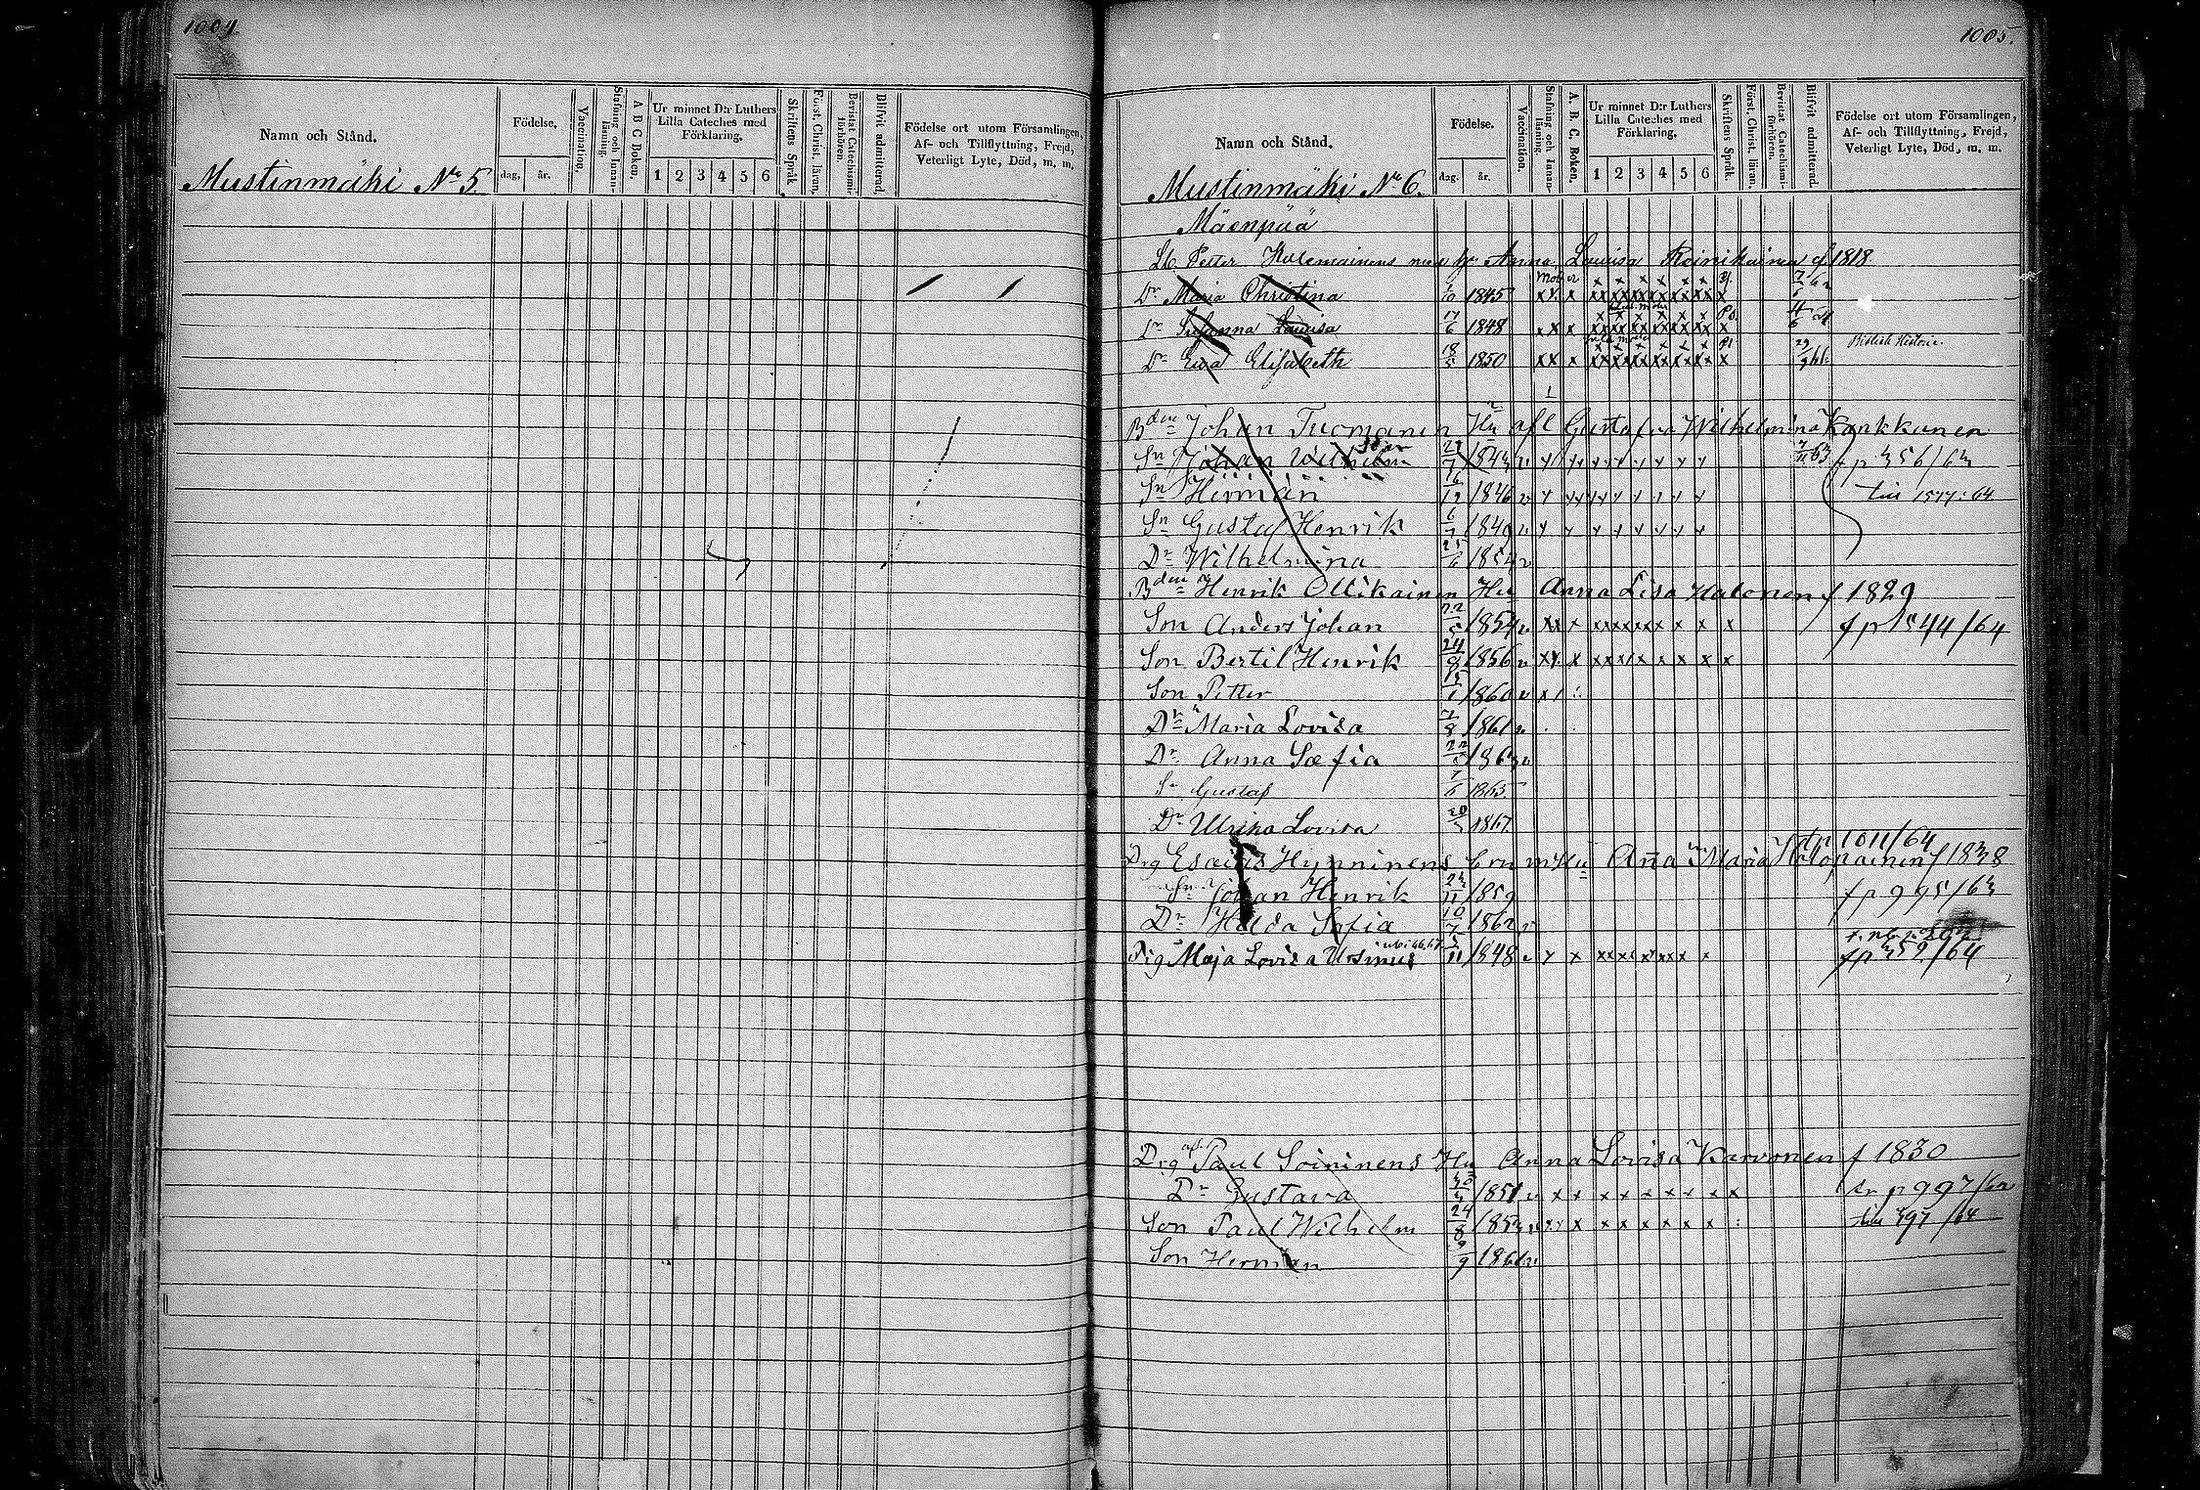 1004.
Namn och Stånd.
Födelse,
dag, år.
Vaccination,
Stafning och Innan-läsning.
A B C Boken.
Ur minnet D:r Luthers Lilla Cateches med Förklaring,
1 2 3 4 5 6
Skriftens Språk.
Först. Christ. läran,
Bevistat Catechismi-förhören.
Blifvit admitterad.
Födelse ort utom Församlingen,
Af- och Tillflyttning, Frejd,
Veterligt Lyte, Död, m. m.
Mustinmäki No 5.
1005.
Namn och Stånd.
Födelse.
dag. år.
Vaccination.
Stafning och Innan-läsning.
A. B. C. Boken.
Ur minnet D:r Luthers Lilla Cateches med Förklaring,
1 2 3 4 5 6
Skriftens Språk.
Först. Christ. läran,
Bevistat Catechismi-förhören.
Blifvit admitterad.
Födelse ort utom Församlingen,
Af- och Tillflyttning, Frejd,
Veterligt Lyte, Död, m. m.
Mustinmäki No 6.
Mäenpää
Petter Anna Lovisa f 1818.
Dr Maria Christina 1845 x x x x x x x x x
Dr Lovisa 17/6 1848 x x x x x x x x x
Dr Eva Elisabeth 18/5 1850 x x x x x x x x x Biblisk Historie.
Bden Johan Tuomanen Hu afl Gustafva Wilhelmina Kankkunen
Sn Johan Wilhelm 1843 v
Sn Herman 1846 v till 1577:64
Sn Gustaf Henrik 6/7 1849 v
Dr Wilhelmina 25/6 1854 v
Bden Henrik Ollikainen Hu Anna Lisa Halonen f 1829
Son Anders Johan 22/5 1854 v x x x x x x x x x x f p 1544/64
Son Bertil Henrik 24/8 1856 v x x x x x x x x x x
Son Petter 15/1 1860 v x
Dr Maria Lovisa 7/8 1861 v
Dr Anna Sofia 1863 v
Sn Gustaf 7/6 1865
Dr Ulrika Lovisa 1867
fr p 1011/64
Drg Hynninens Anna Maria f 1838
Sn Johan Henrik 23/11 1859 f p 995/63
Dr Hilda Sofia 10/7 1862 v
Pig Maja Lovisa Ursinus 1848 v x x x x x x x x x f p 359/64
Drg afl. Paul Soininens Hu Anna Lovisa Karvonen f 1830
Dr Gustava 1851 v x x x x x x x x x p 997/62
Son Paul Wilhelm 24/8 1853 v x x x x x x x x till 797/64
Son Herman 9/9 1861 v